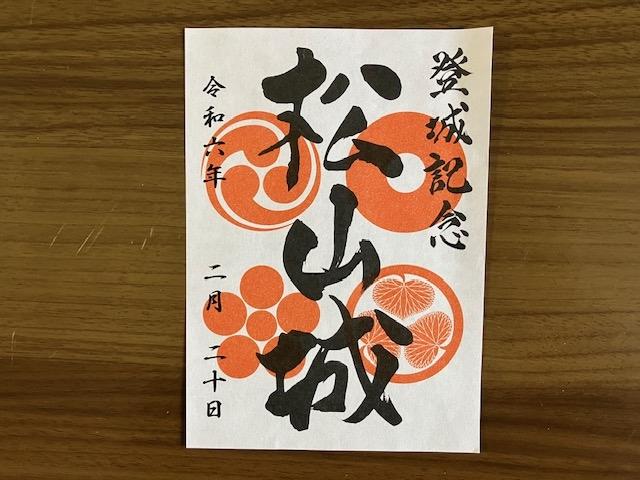 登城記念
松山城
令和六年 二月 二十日